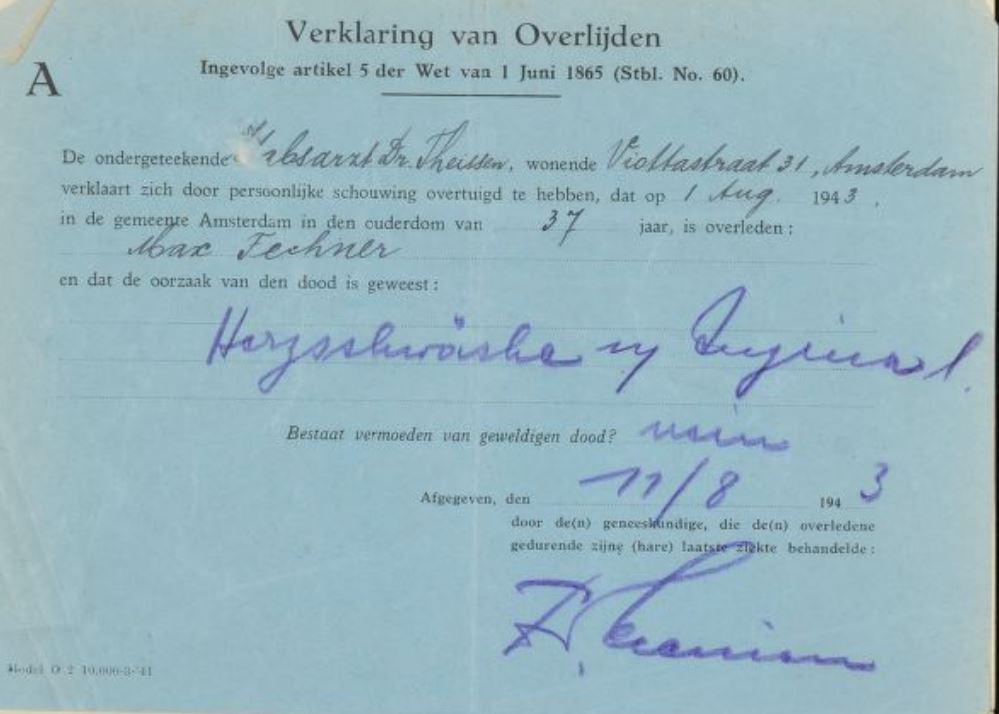 Verklaring van Overlijden
Ingevolge artikel 5 der Wet van 1 Juni 1865 (Stbl. No. 60).
A
De ondergeteekende Stabsarzt Dr. Theissen, wonende Viottastraat 31, Amsterdam
verklaart zich door persoonlijke schouwing overtuigd te hebben, dat op 1 Aug. 1943.
in de gemeente Amsterdam in den ouderdom van 37 jaar, is overleden:
Max Fechner
en dat de oorzaak van den dood is geweest:
Herzschwäche
Bestaat vermoeden van geweldigen dood? nein
Afgegeven, den 11/8 1943
door de(n) geneeskundige, die de(n) overledene
gedurende zijne (hare) laatste ziekte behandelde:
Model O 2 10,000-3-'41